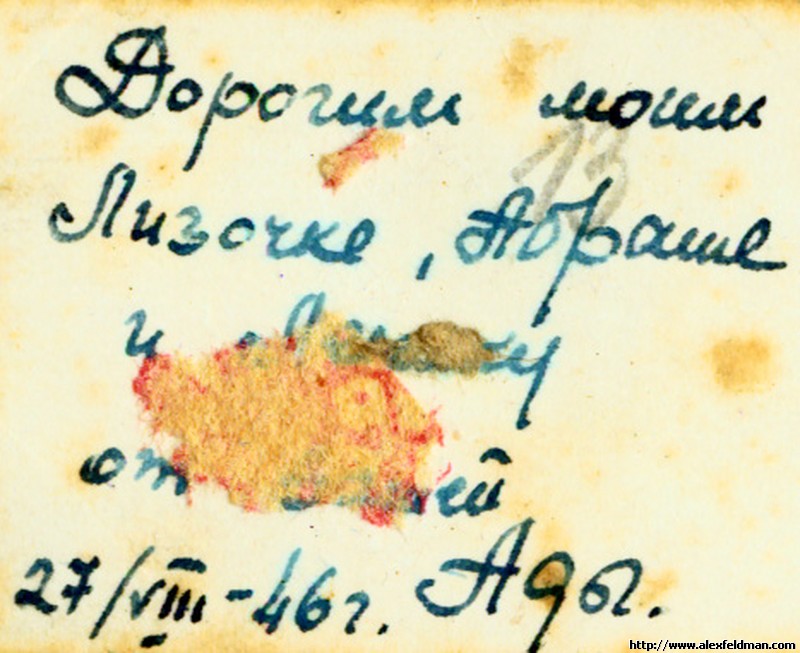 Дорогим моим
13
Лизочке, Абраше
и
от
27/VIII-46г. Ады.
http://www.alexfeldman.com